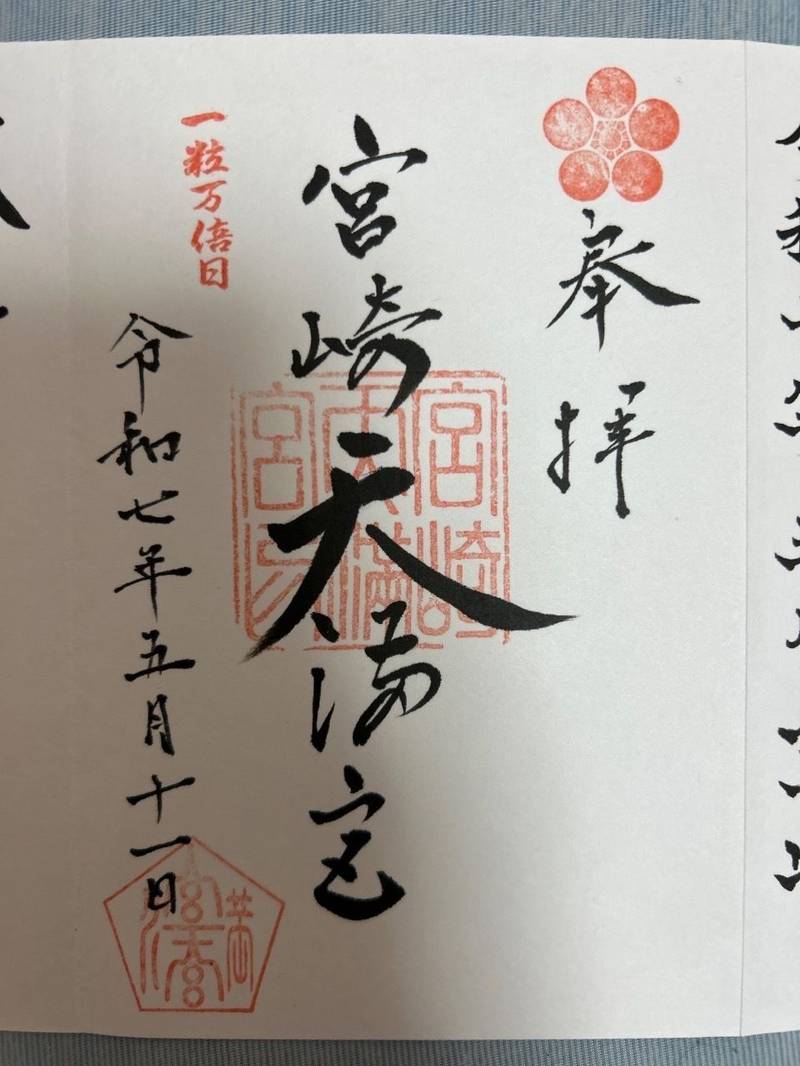 奉拝
宮崎天満宮
宮崎
天満
宮印
一粒万倍日
令和七年五月十一日